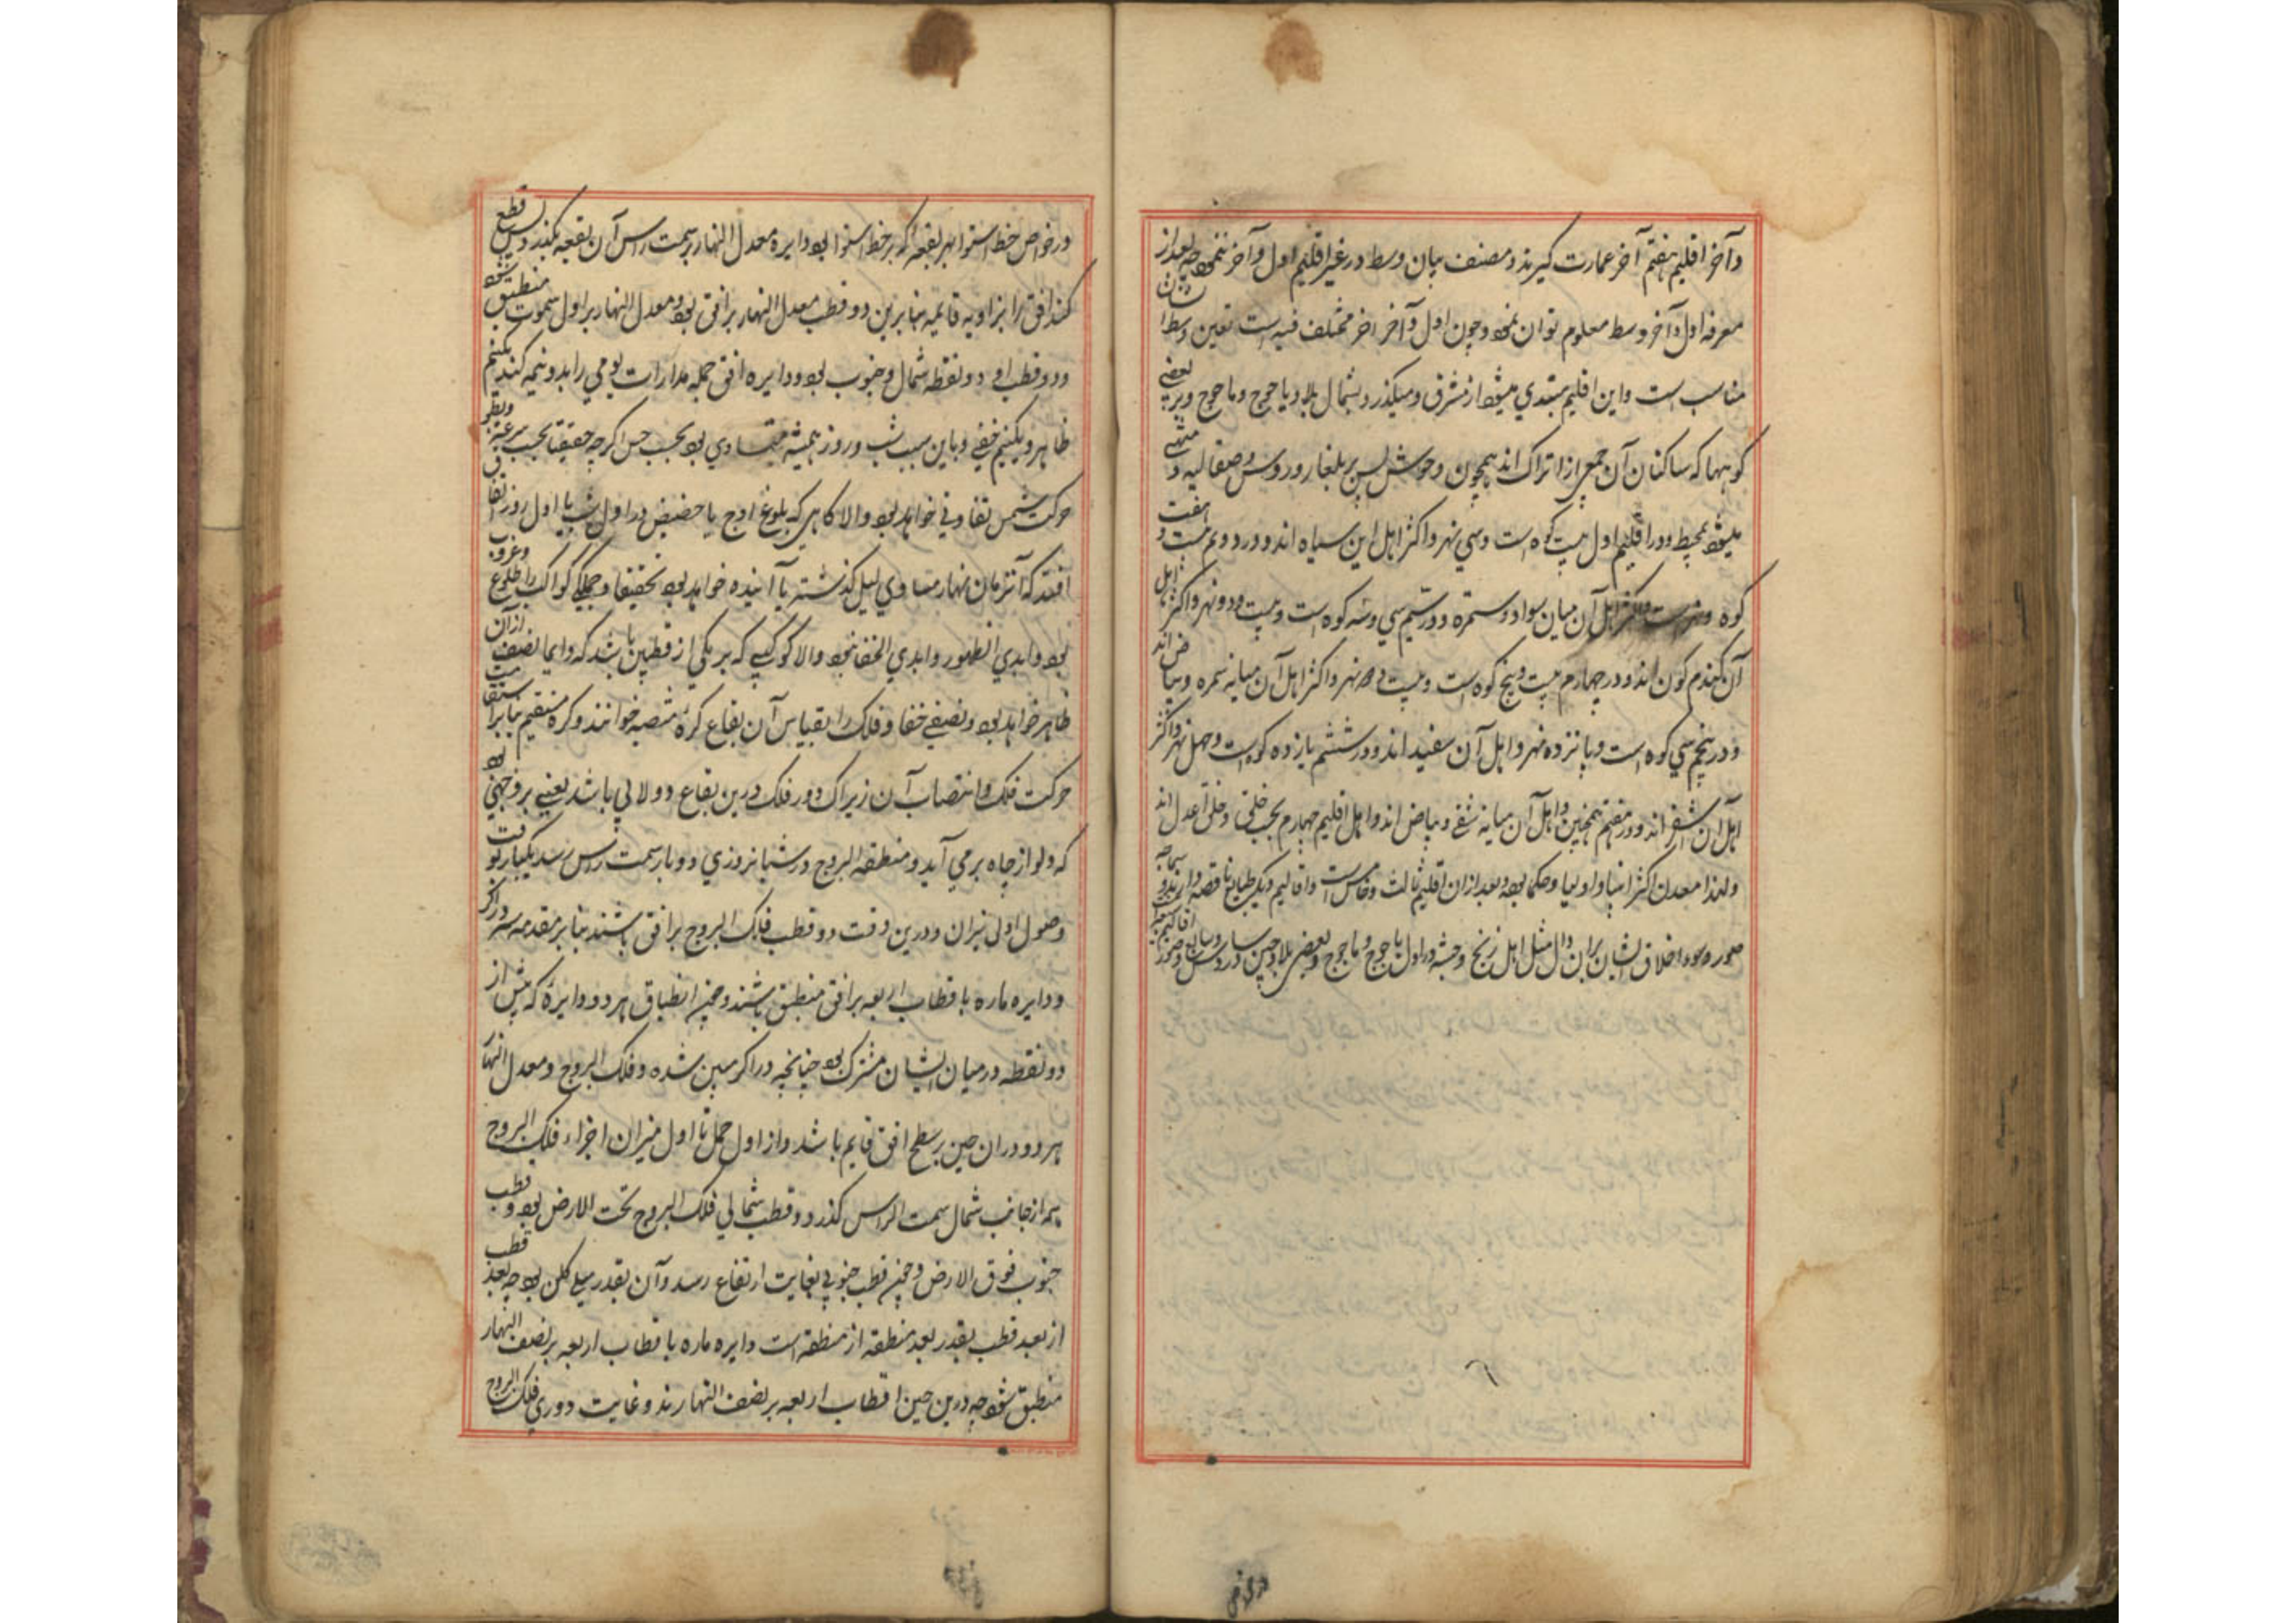 وآخر اقلیم هفتم آخر عمارت گیرند و مصنف بیان وسط در غیر اقلیم اول و آخر ننمود چه بعد از
معرفه اول و آخر وسط معلوم توان نمود و چون اول و آخر آخر مختلف فیه است تعین وسط
مناسب است و این اقلیم مبتدی میشود از مشرق و میگذرد بشمال بلاد یاجوج و ماجوج و بر بعضی
کوهها که ساکنان آن جمعی از اتراک اند همچون وحوش پس بر بلغار و روس و صقالیه و منتهی
میشود بمحیط و در اقلیم اول بیست کوه است و سی نهر و اکثر اهل این سیاه اند و در دوم بیست و هفت
کوه و اهل آن میان سواد و سمره و در سیم سی و سه کوه است و بیست و دو نهر و اکثر اهل
آن گندم گون اند و در چهارم بیست و پنج کوه است و بیست و دو نهر و اکثر اهل آن میانه سمره و بیاض اند
و در پنجم سی کوه است و پانزده نهر و اهل آن سفید اند و در ششم یازده کوه است و چهل نهر و اکثر
اهل آن اشقر اند و در هفتم همچنین و اهل آن میانه شقر و بیاض اند و اهل اقلیم چهارم بحسب خلقی و خلق اعدل اند
ولهذا معدن اکثر انبیا و اولیا و حکما بود و بعد از آن اقلیم ثالث و خامس است و اقالیم دیگر طبایع ناقصه دارند و سماجه
صوره و سوء اخلاق ایشان بر این دال مثل اهل زنج و حبشه در اول و یاجوج و ماجوج و بعضی بلاد چین
در خواص
در خواص خط استوا هر بقعه که بر خط استوا بود دایره معدل النهار بر سمت راس آن بقعه بگذرد پس قطع
کند افق را بزاویه قایمه بنابرین دو قطب معدل النهار بر افق بود و معدل النهار بر اول سموت منطبق شود
و دو قطب او دو نقطه شمال و جنوب بود و دایره افق جمله مدارات یومی را بدو نیمه کند یک نیم
ظاهر و یک نیم خفی و باین سبب شب و روز همیشه متساوی بود بحسب حس اگر چه حقیقتا بحسب سرعت و بطو
حرکت شمس تفاوتی خواهد بود والا گاهی که بلوغ اوج یا حضیض در اول شب یا اول روز اتفاق
افتد که آنزمان نهار مساوی لیل گذشته یا آینده خواهد بود تحقیقا و جملگی کواکب را طلوع و غروب
بود و ابدی الظهور و ابدی الخفا نبود والا کوکبی که بر یکی از قطبین باشد که دایما نصف از آن
ظاهر خواهد بود و نصفی خفا و فلک را بقیاس آن بقاع کره منتصبه خوانند و کره مستقیم بنابر استقامت
حرکت فلک و انتصاب آن زیراکه دور فلک درین بقاع دولابی باشد یعنی بر وجهی بود
که دلو از چاه بر می آید و منطقه البروج در شبانروزی دو بار بسمت راس رسد یکبار وقت
وصول اولی میزان و درین وقت دو قطب فلک البروج بر افق باشند بنابر مقدمه در اکر
و دایره ماره باقطاب اربعه بر افق منطبق باشند و حین انطباق هر دو دایره که بیش از
دو نقطه در میان ایشان مشترک بود چنانچه در اکر مبین شده و فلک البروج و معدل النهار
هر دو در آن حین بر سطح افق قایم باشد و از اول حمل تا اول میزان اجزاء فلک البروج
همه از جانب شمال سمت الراس گذرد و قطب شمالی فلک البروج تحت الارض بود و قطب
جنوب فوق الارض و حین قطب جنوبی بغایت ارتفاع رسد و آن بقدر میل کلی بود چه بعد قطب
از بعد قطب بقدر بعد منطقه از منطقه است دایره ماره باقطاب اربعه بر نصف النهار
منطبق شود چه درین حین اقطاب اربعه بر نصف النهارند و غایت دوری فلک البروج